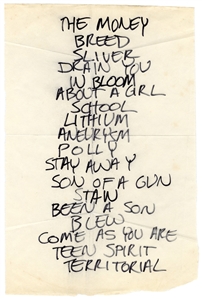 THE MONEY
BREED
SLIVER
DRAIN YOU
IN BLOOM
ABOUT A GIRL
SCHOOL
LITHIUM
ANEURYSM
POLLY
STAY AWAY
SON OF A GUN
STAIN
BEEN A SON
BLEW
COME AS YOU ARE
TEEN SPIRIT
TERRITORIAL